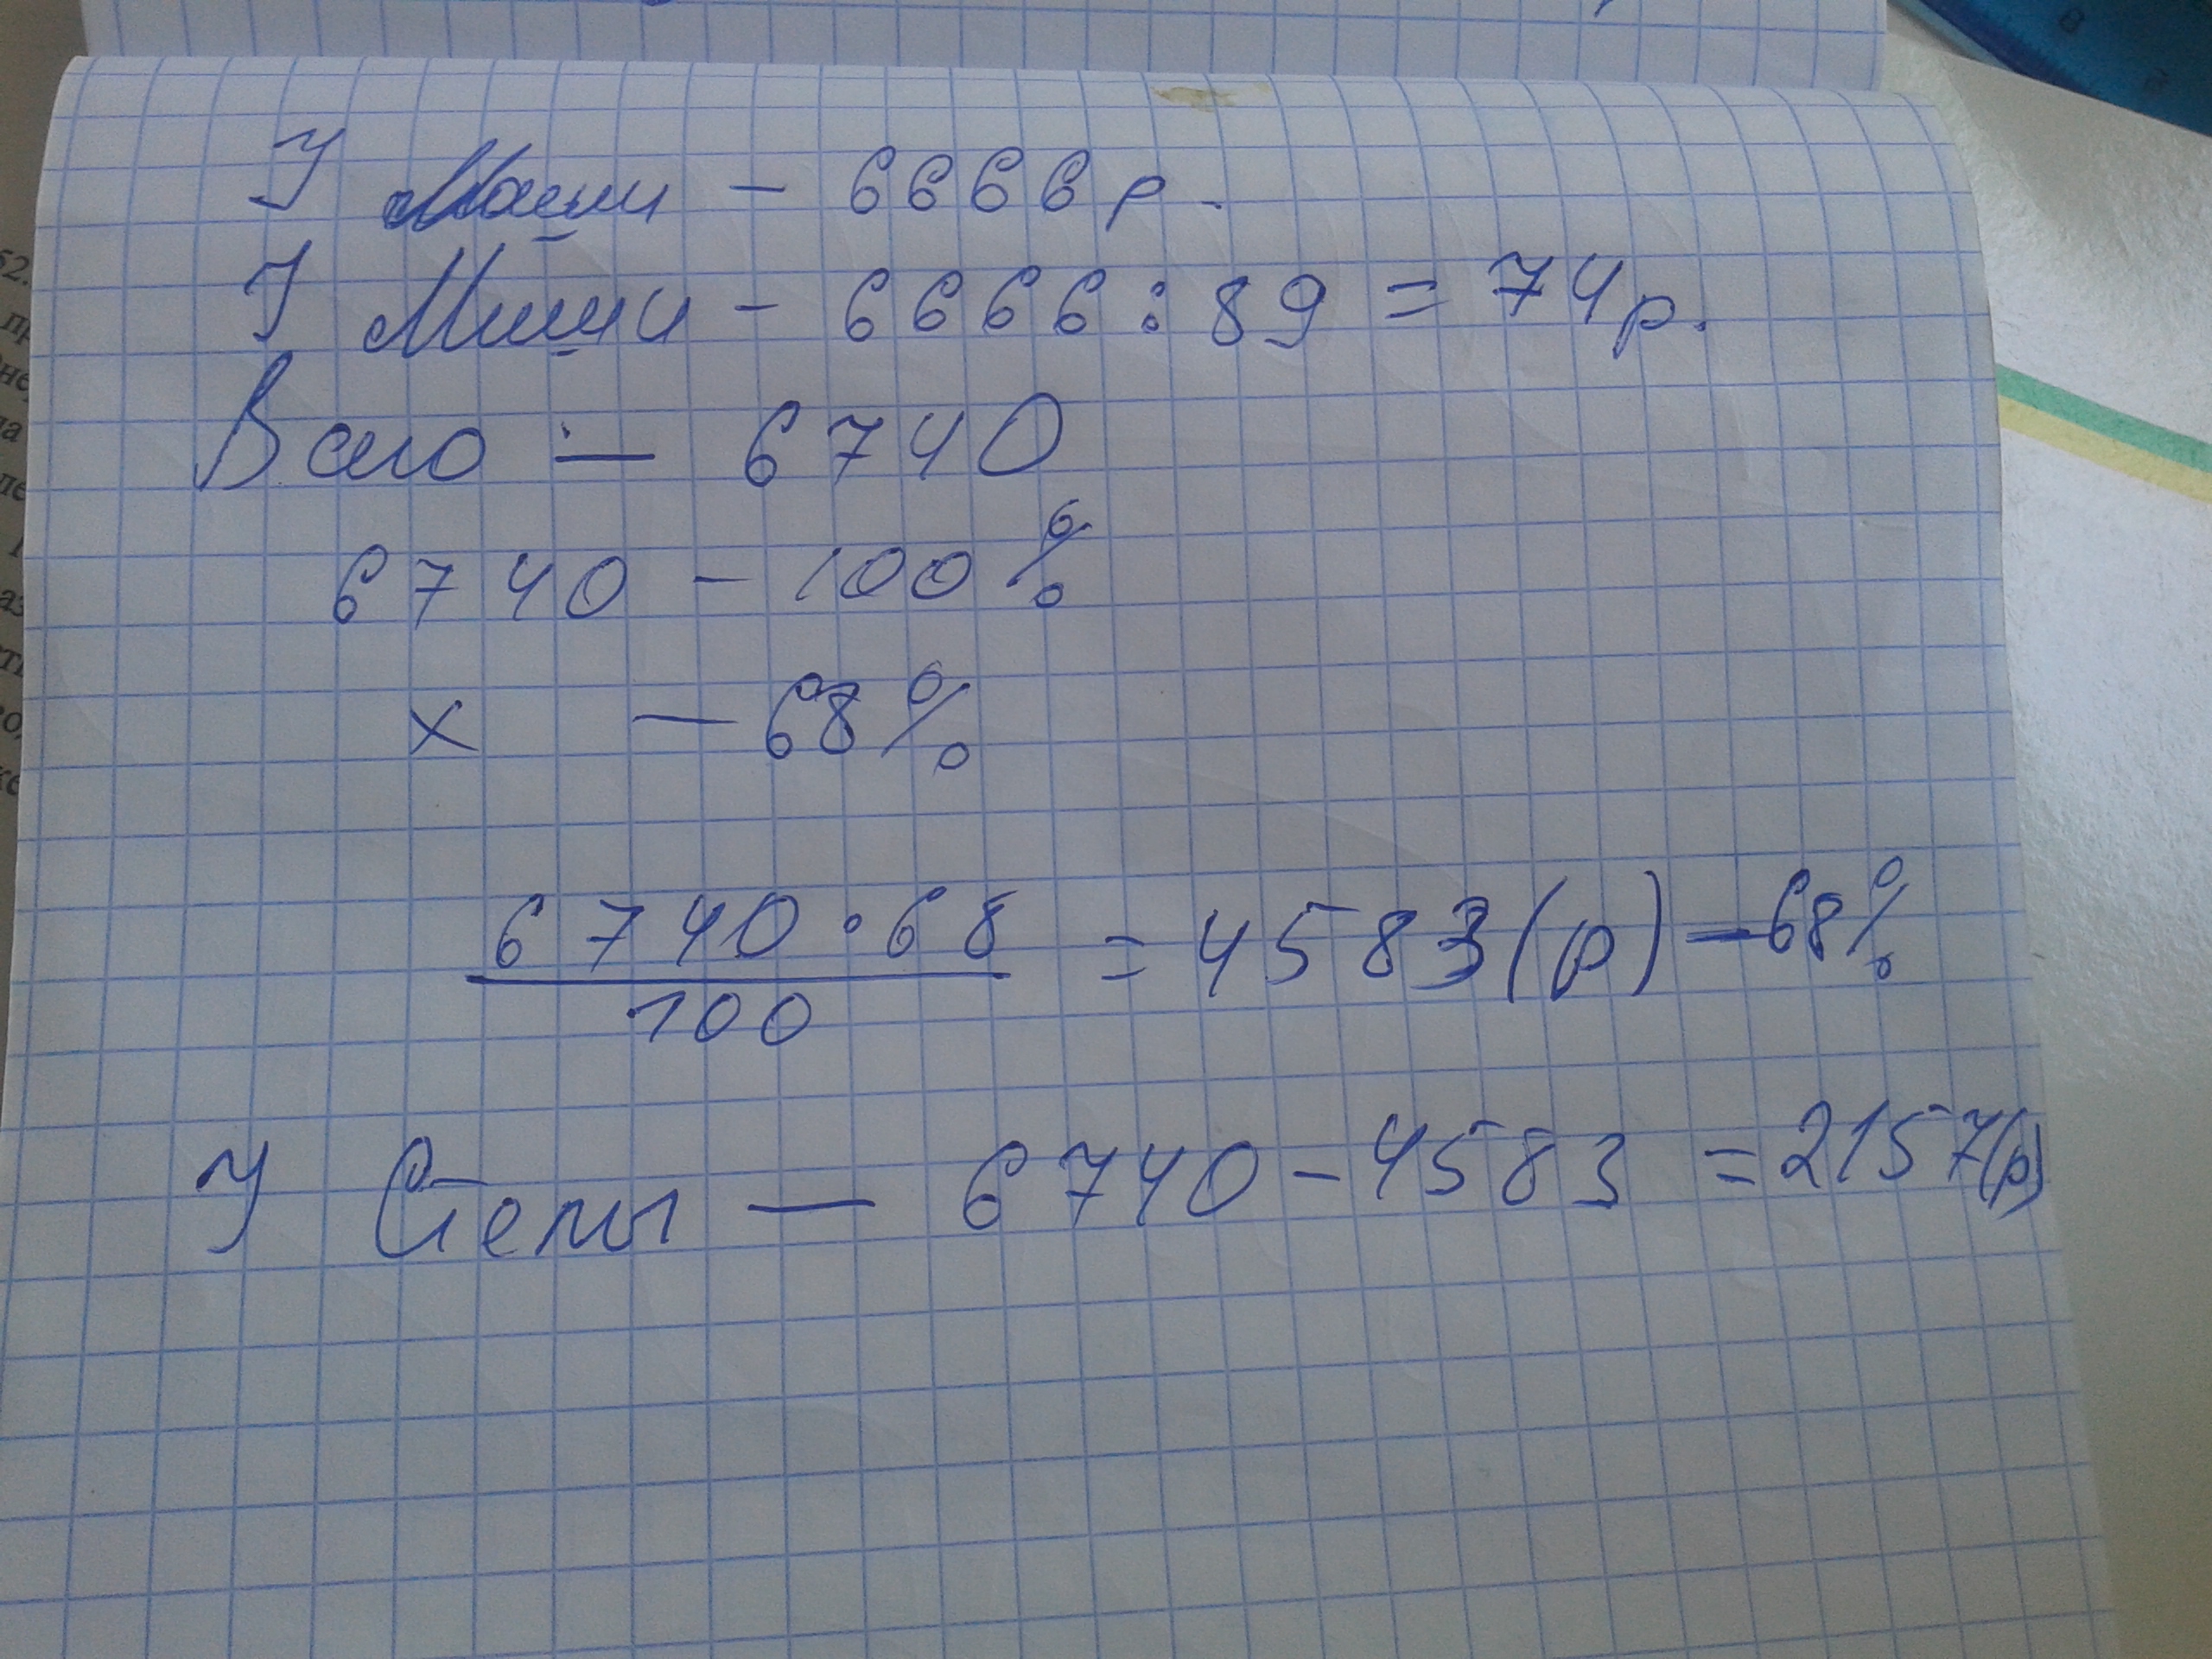 У Маши - 6666 р.
У Миши - 6666 : 89 = 74 р.
Всего - 6740
6740 - 100%
х - 68%
6740 · 68
100
= 4583 (р) - 68%
У Стёпы - 6740 - 4583 = 2157 (р)